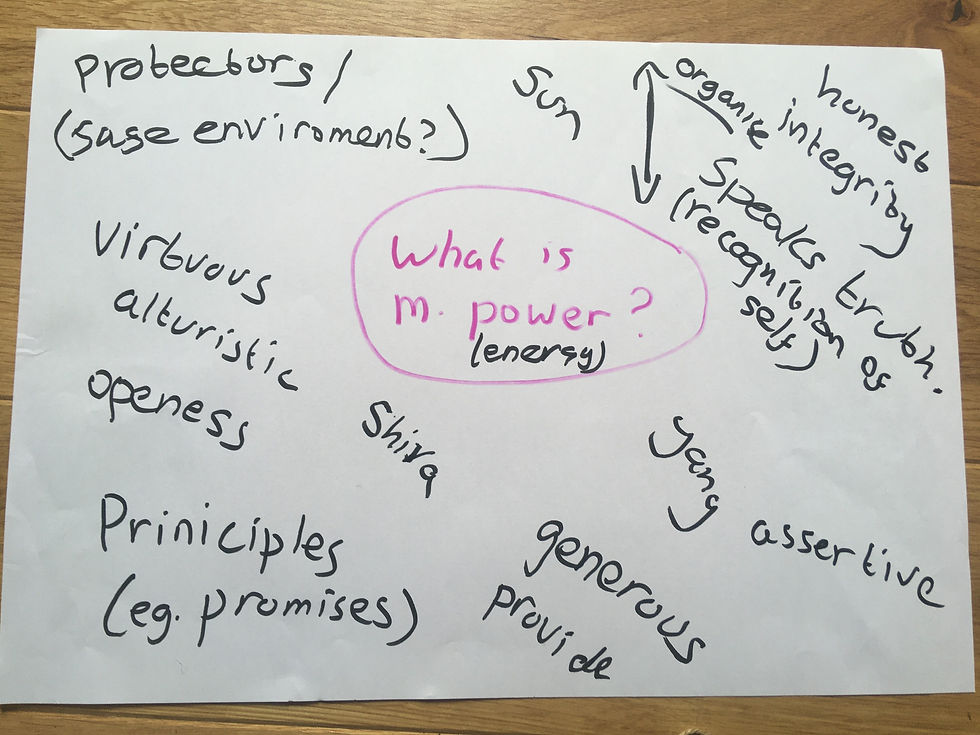 protectors /
(safe enviroment?)
Sun
organic
honest
integrity
Speaks truth.
(recognition of
self)
What is
m. power?
(energy)
Virtuous
alturistic
openess
Shiva
yang
assertive
Priniciples
(eg. promises)
generous
provide